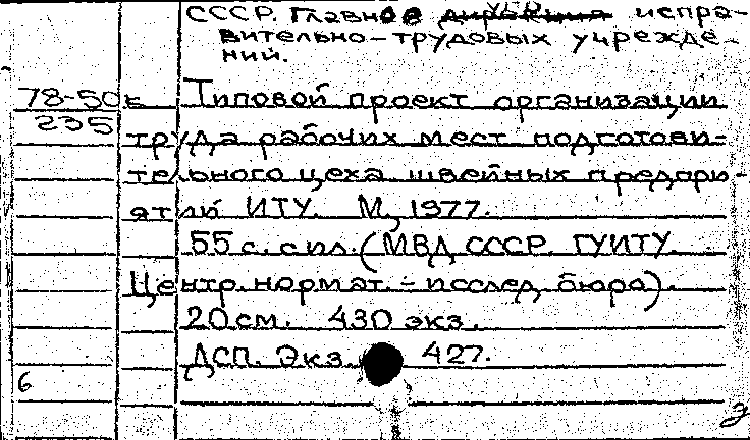 СССР. Главное упр. испра-
вительно-трудовых учрежде-
ний.
78-50к Типовой проект организации
235 труда рабочих мест подготови-
тельного цеха швейных предпри-
ятий ИТУ. М., 1977.
55 с. с ил. (МВД СССР. ГУИТУ.
Центр. нормат.-исслед. бюро).
20 см. 430 экз.
ДСП. Экз. 427.
6